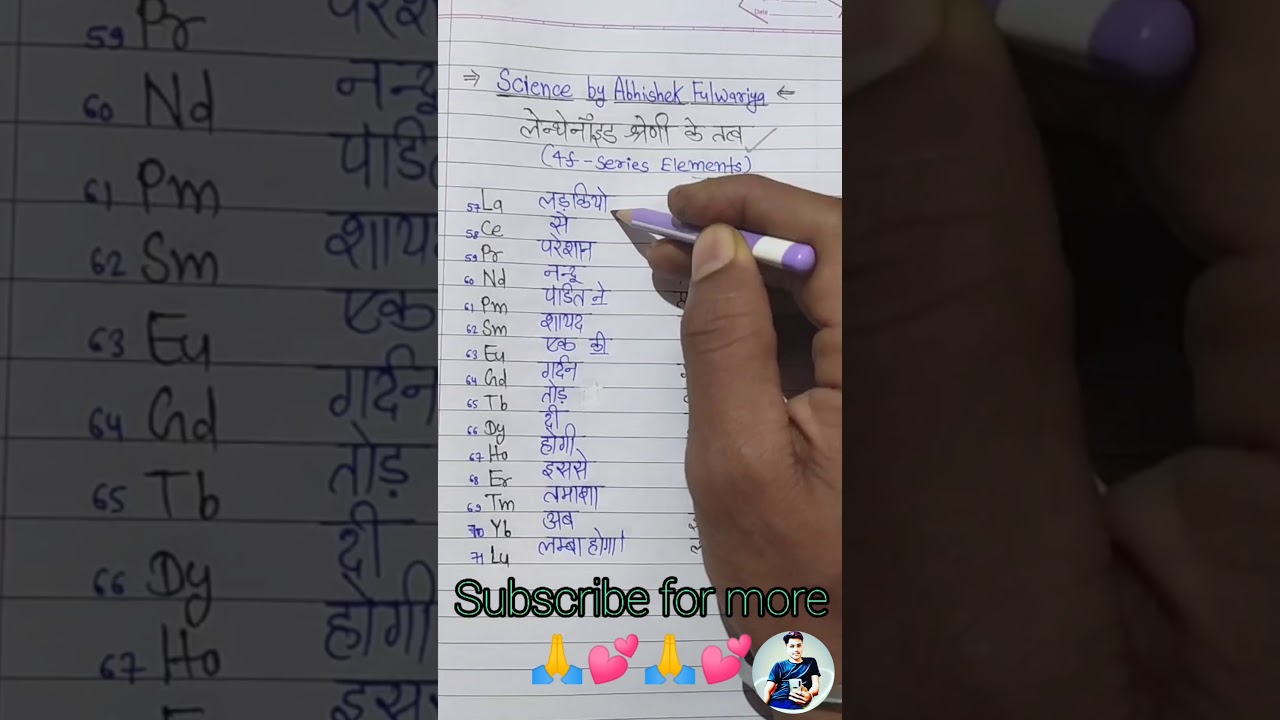 Date
⇒ Science by Abhishek Fulwariya ←
लेन्थेनॉइड श्रेणी के तत्व ✓
(4f-Series Elements)
57 La लड़कियो
58 Ce से
59 Pr परेशान
60 Nd नन्दू
61 Pm पंडित ने
62 Sm शायद
63 Eu एक की
64 Gd गर्दन
65 Tb तोड़
66 Dy दी
67 Ho होगी
68 Er इससे
69 Tm तमाशा
70 Yb अब
71 Lu लम्बा होगा।
Subscribe for more